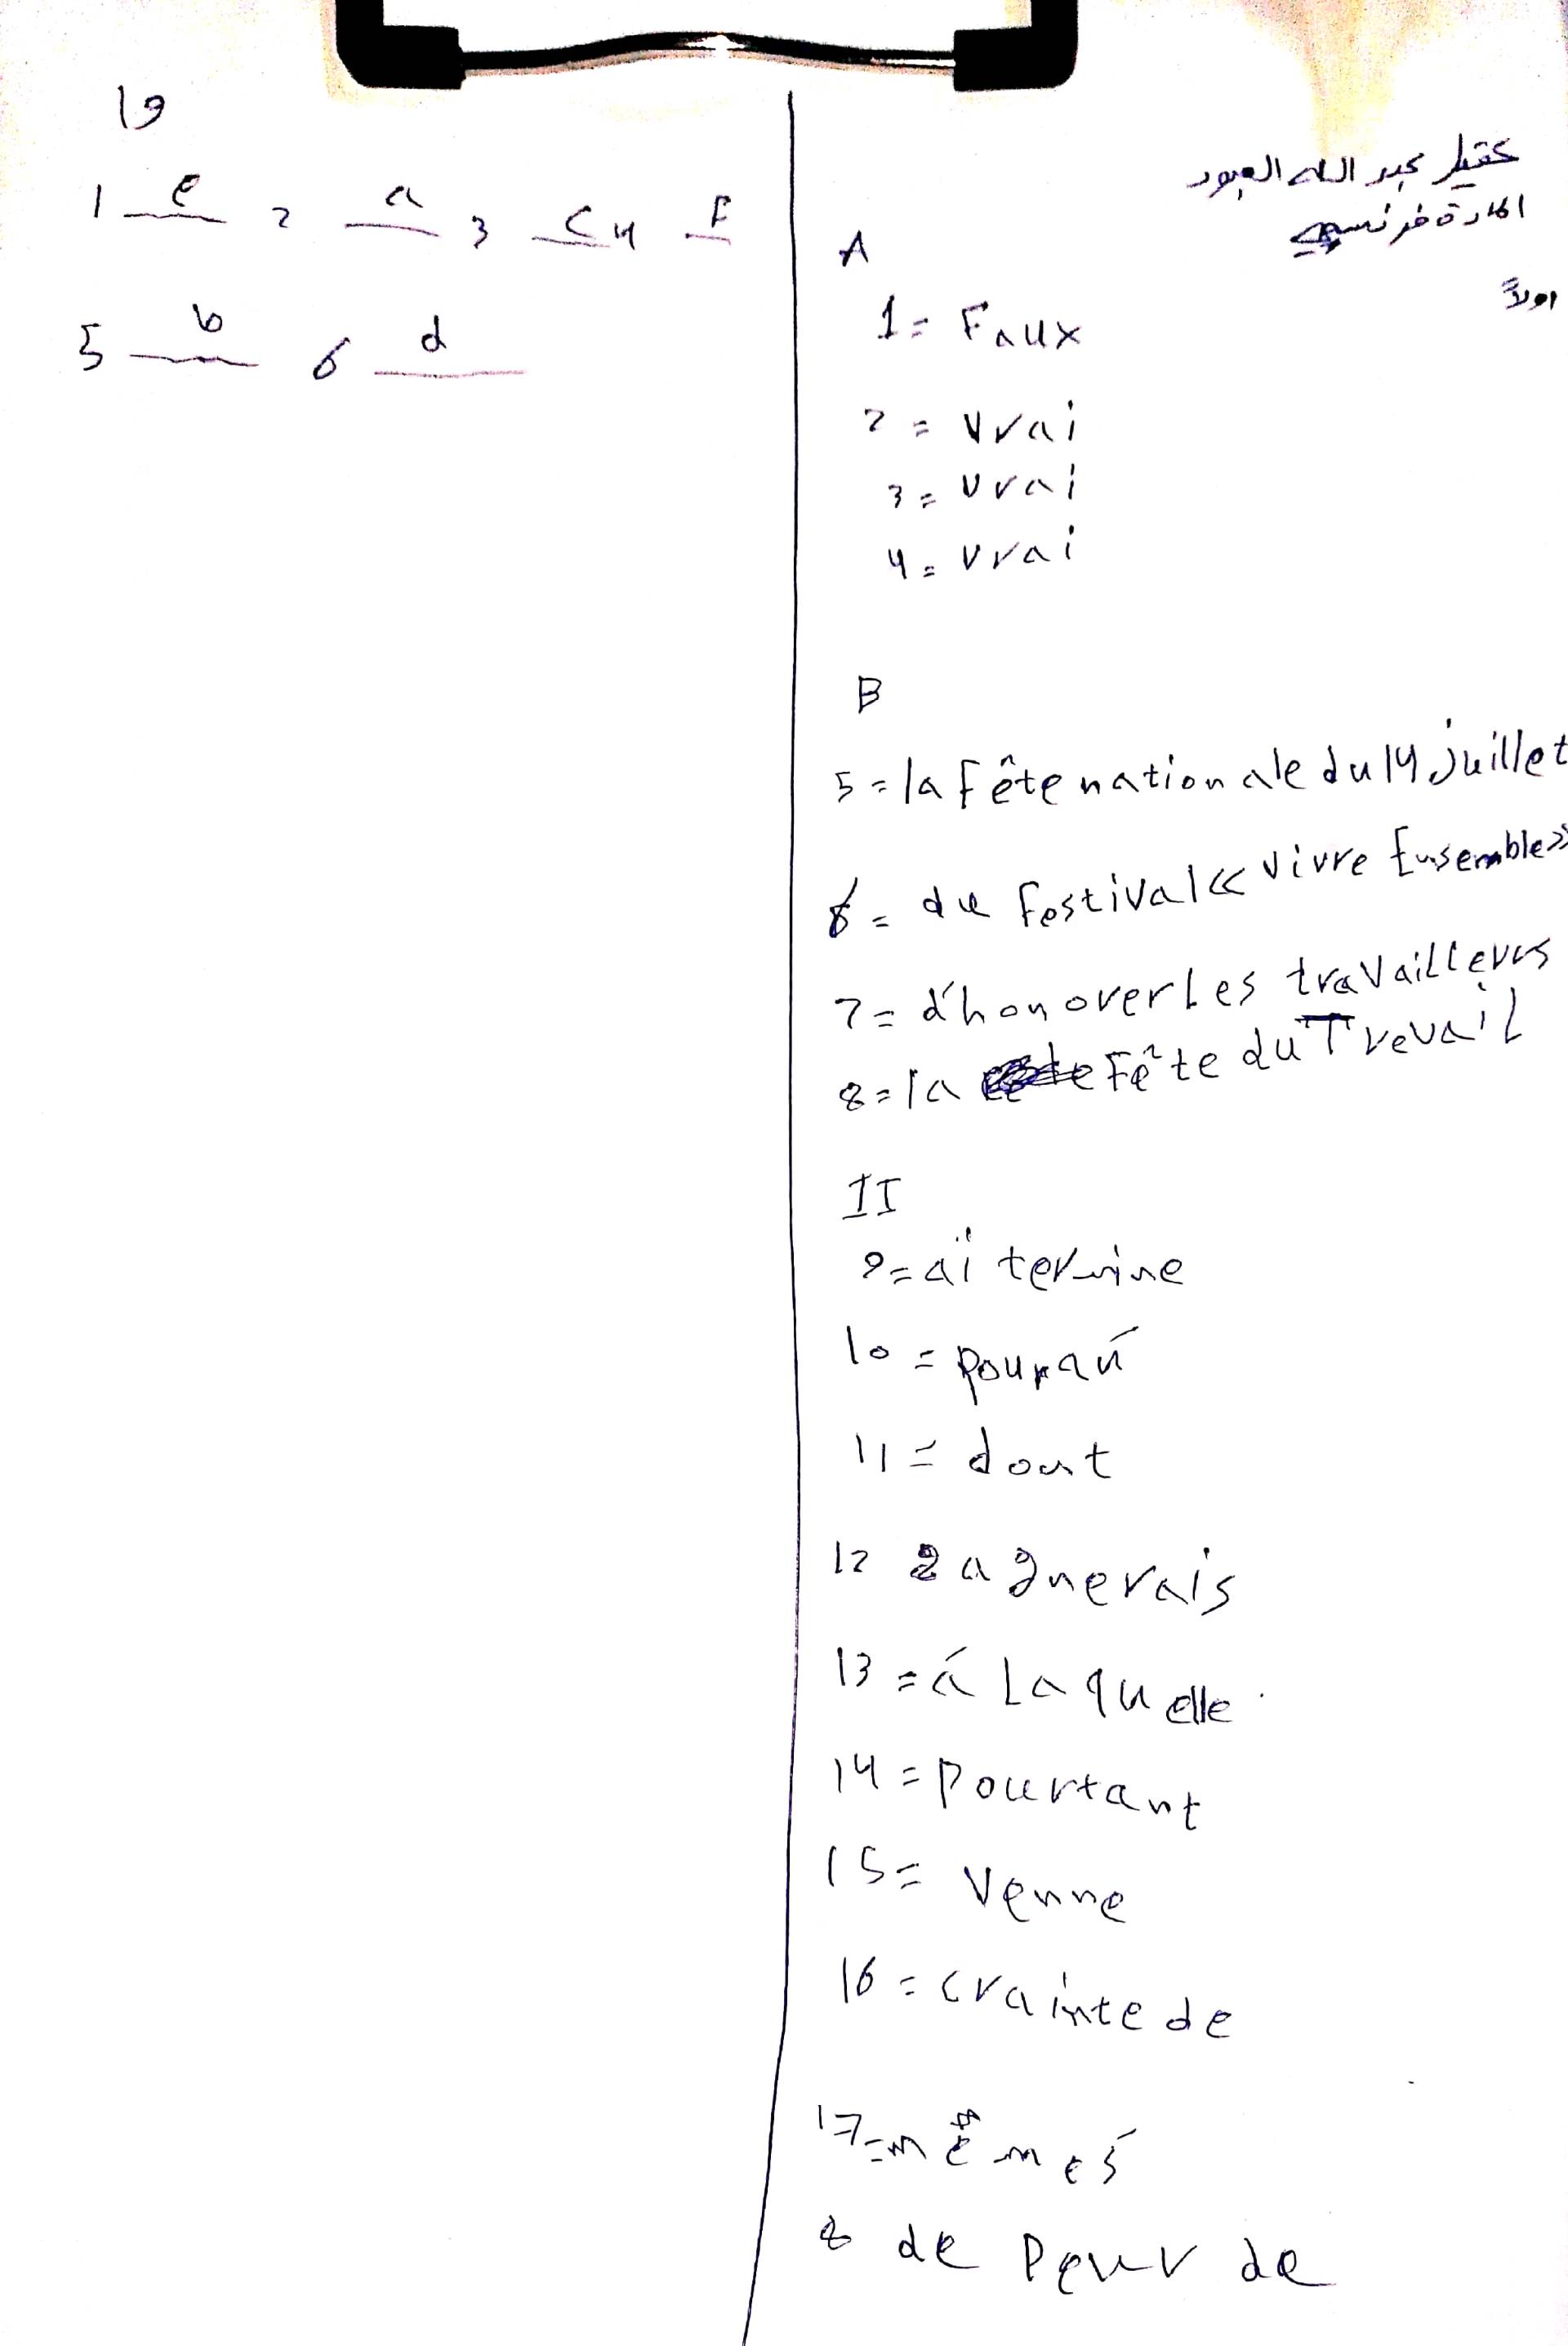 عقيل عبد الله العبود
المادة فرنسي
اولاً
A
1= Faux
2= vrai
3= vrai
4= vrai
B
5= la fête nationale du 14 juillet
6= du festival « vivre Ensemble »
7= d'honorer Les travailleurs
8= la Fête du Trevail
II
9= ai termine
10= pour
11= dont
12 gagnerais
13= á Laquelle
14= Pourtant
15= Venne
16= crainte de
17= mêmes
8 de peur de
19
1 e 2 a 3 c 4 f
5 b 6 d